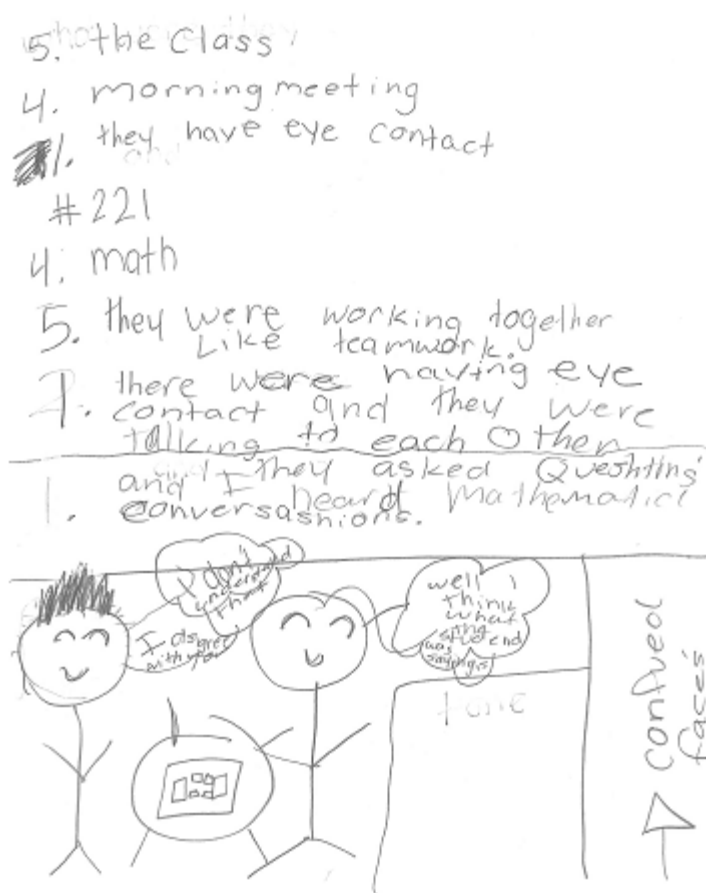 5. the class
4. morning meeting
1. they have eye contact
#221
4. math
5. they were working together
Like teamwork.
1. there were having eye
contact and they were
talking to each other
and I they asked Queshtins
1. heard mathematicl
conversashions.
I don't
understand
that
I disgree
with you
well I
think
what
the
student
was
saying is
tone
confued
faces